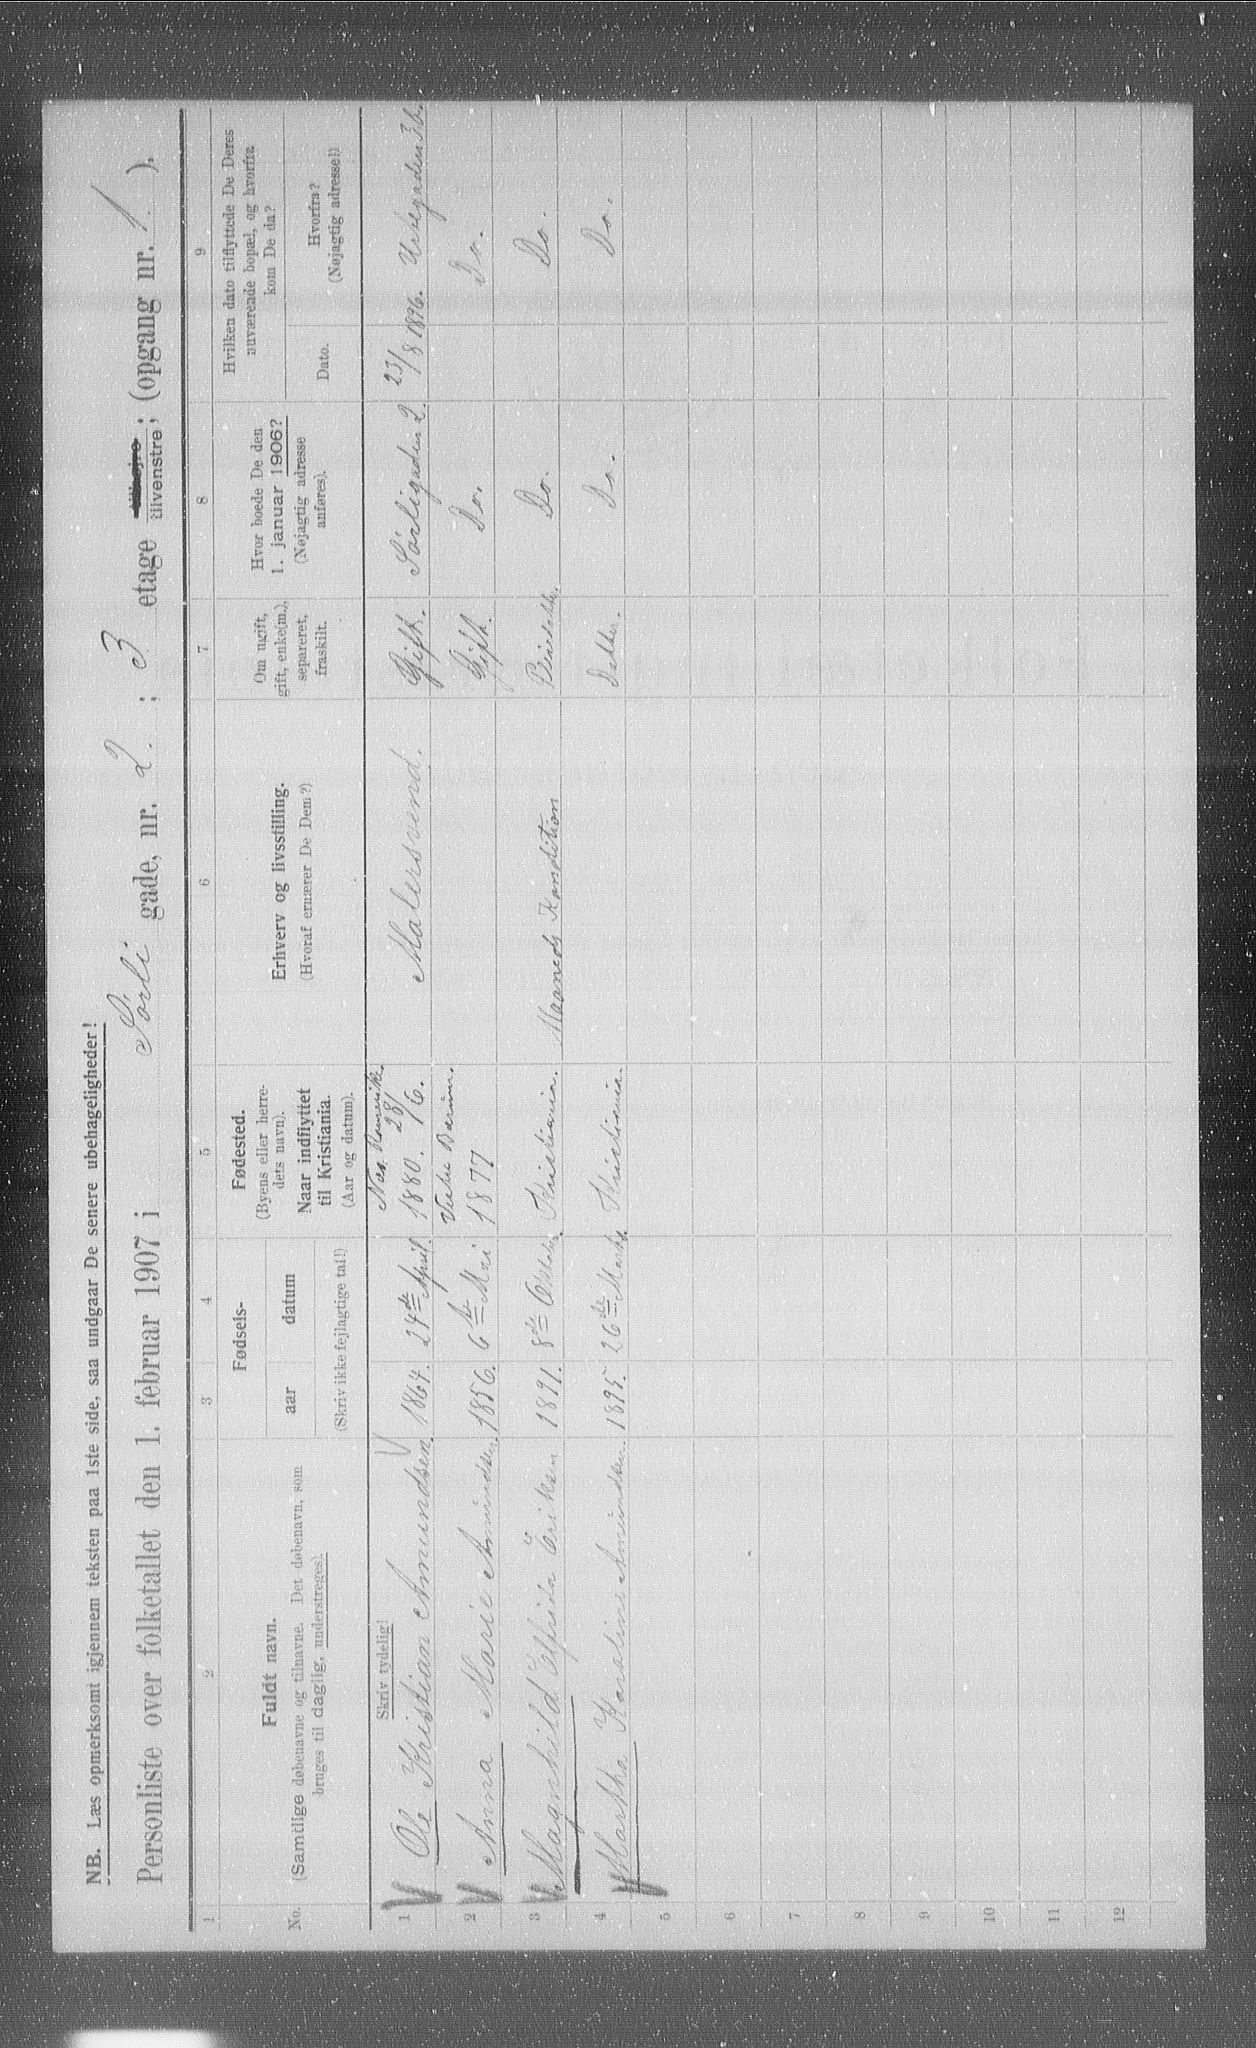 NB. Læs opmerksomt igjennem teksten paa 1ste side, saa undgaar De senere ubehageligheder!
Personliste over folketallet den 1. februar 1907 i Sörli gade, nr. 2. ; 3 etage tilvenstre; (opgang nr. 1. ).
1 2 3 4 5 6 7 8 9
No.
Fuldt navn.
(Samtlige døbenavne og tilnavne. Det døbenavn, som
bruges til daglig, understreges).
Fødsels-
aar datum
(Skriv ikke fejlagtige tal!)
Fødested.
(Byens eller herre-
dets navn).
Naar indflyttet
til Kristiania.
(Aar og datum).
Erhverv og livsstilling.
(Hvoraf ernærer De Dem?)
Om ugift,
gift, enke(m.),
separeret,
fraskilt.
Hvor boede De den
1. januar 1906?
(Nøjagtig adresse
anføres).
Hvilken dato tilflyttede De Deres
nuværende bopæl, og hvorfra
kom De da?
Dato.
Hvorfra?
(Nøjagtig adresse!)
Skriv tydelig!
1 Ole Kristian Amundsen. 1864. 24de April. Nes Romerike. 1880. 28/6. Malersvend. Gift. Sörligaden 2. 23/8 1896. Urtegaden 36.
2 Anna Marie Amundsen. 1856. 6te Mai Vestre Bærum. 1877 Gift. Do. Do.
3 Magnhild Elfrida Eriksen 1891. 8de Oktober. Kristiania. Maaneds Kondition Do. Do.
4 Martha Karoline Amundsen. 1895. 26de Marts. Kristiania. Datter. Do. Do.
5
6
7
8
9
10
11
12